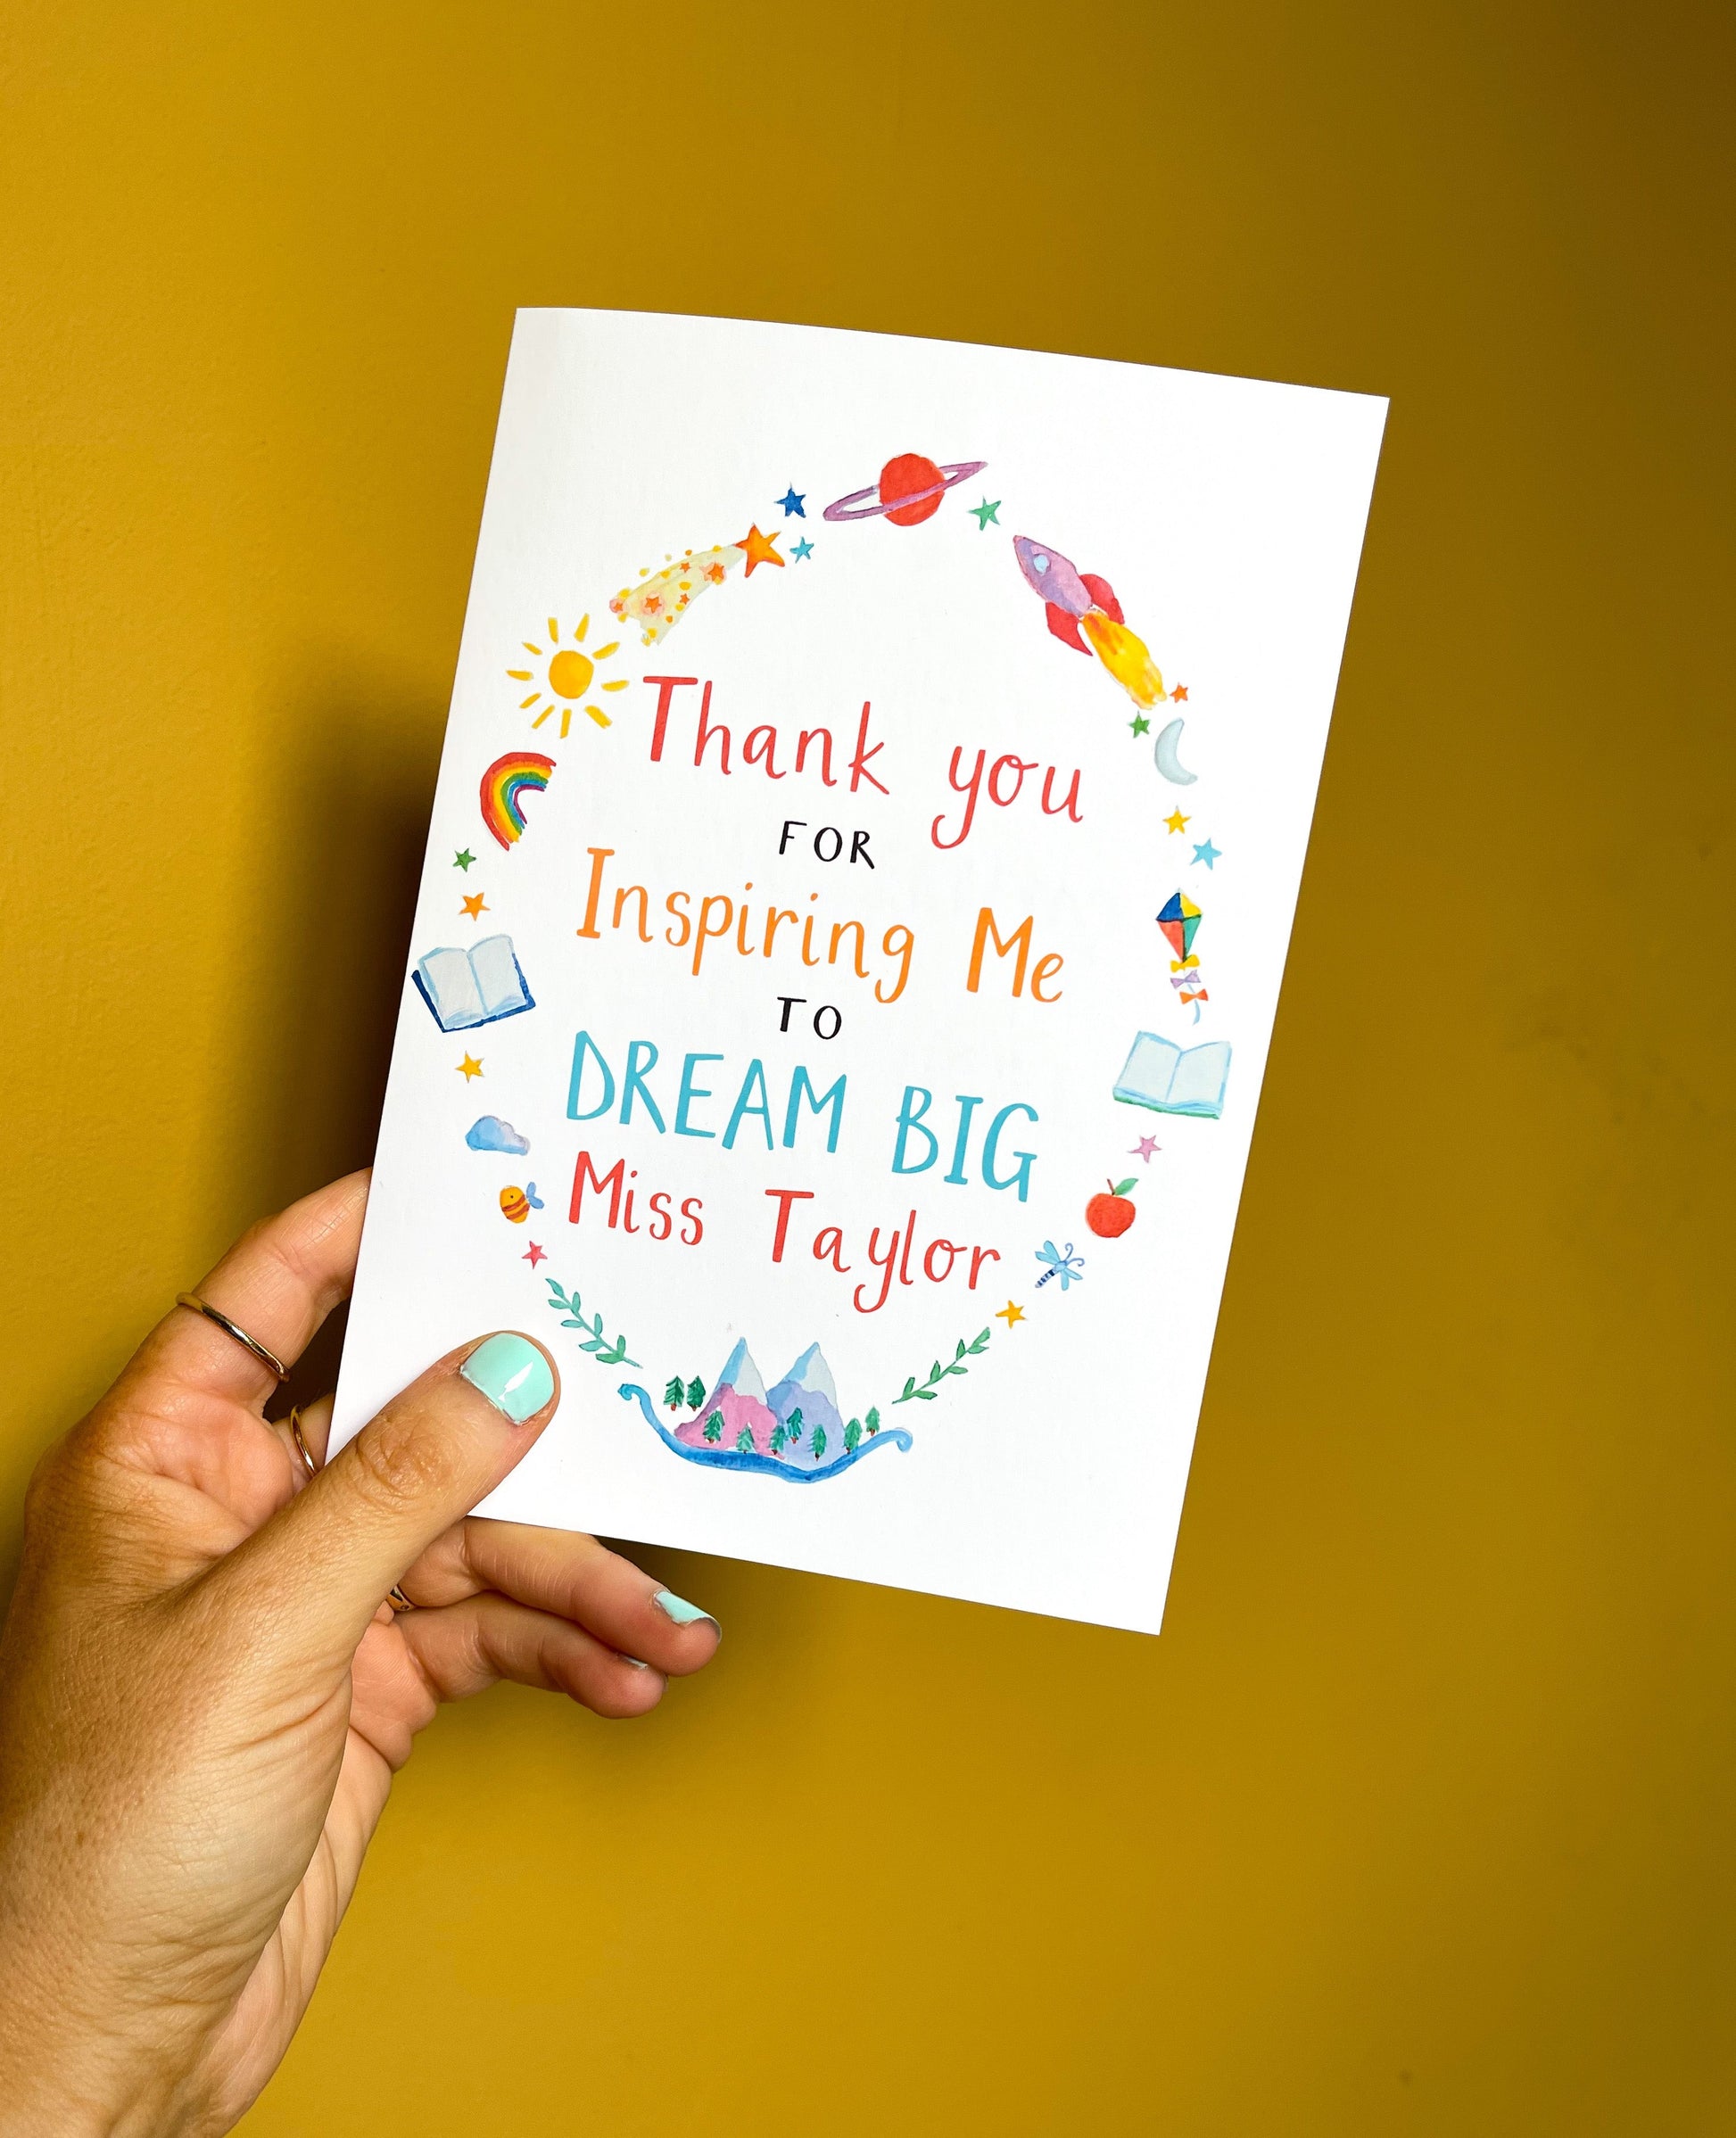 Thank you
FOR
Inspiring Me
TO
DREAM BIG
Miss Taylor